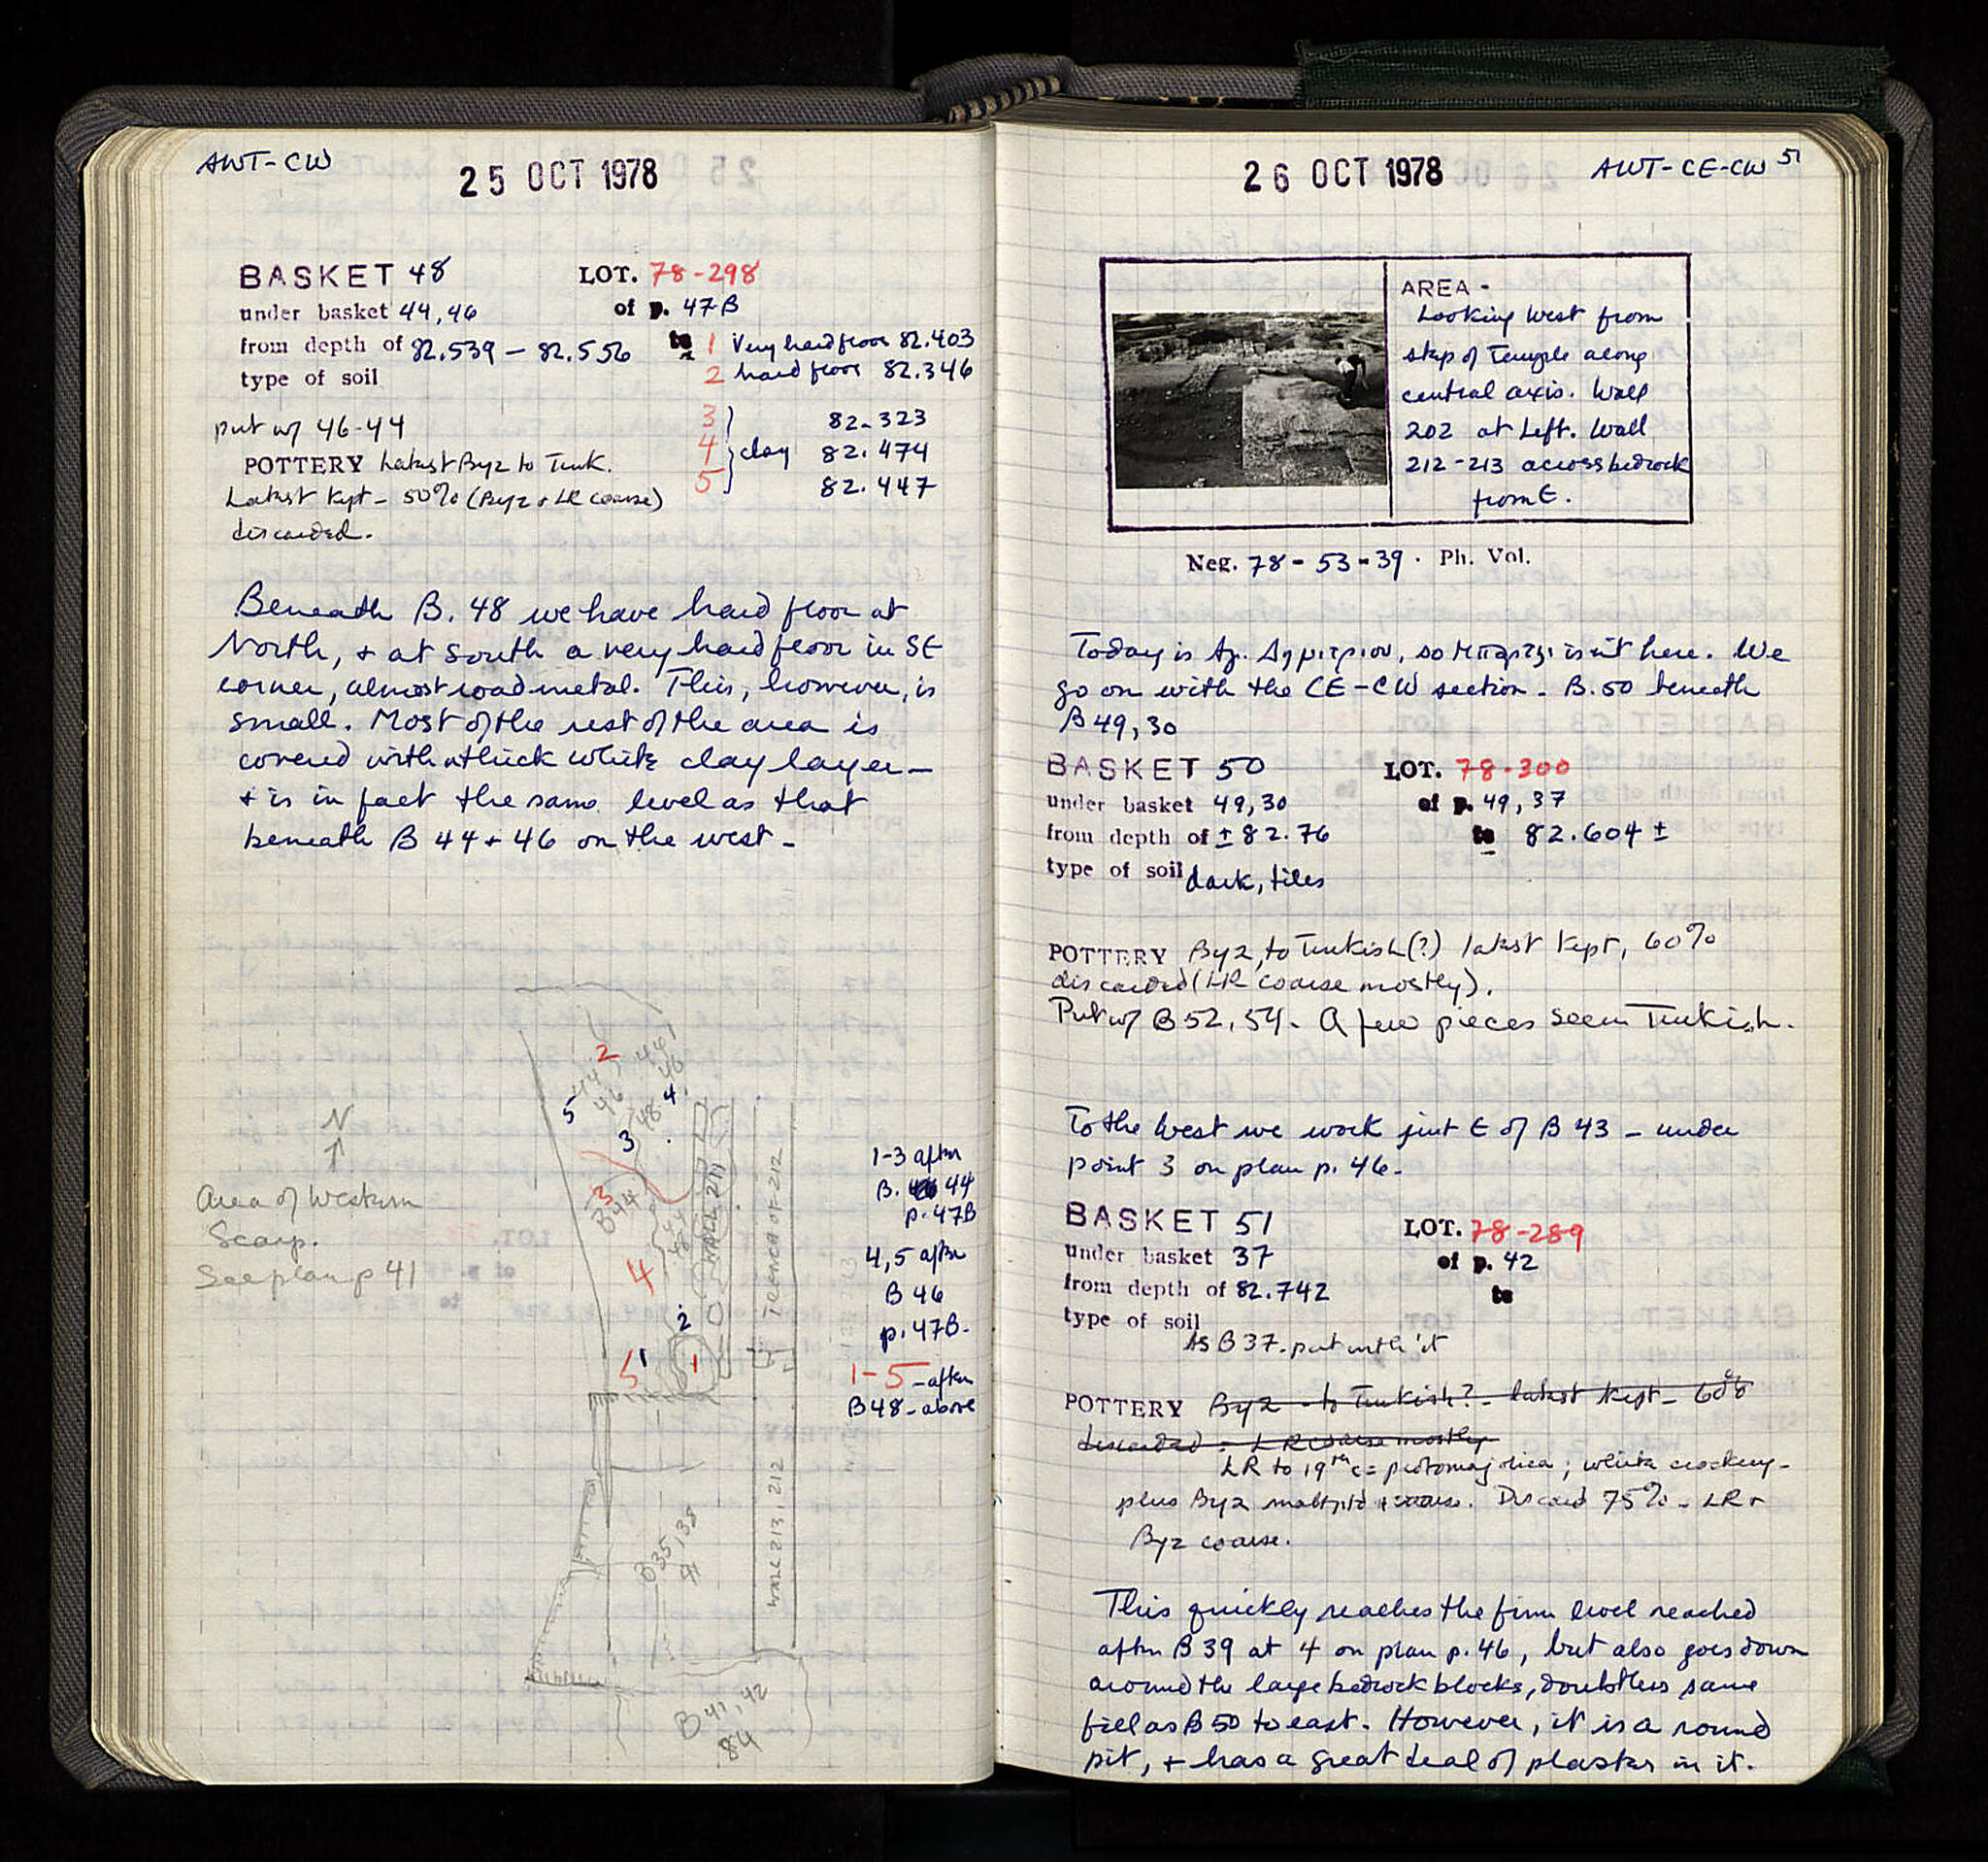 AWT-CW
25 OCT 1978
BASKET 48 LOT. 78-298
under basket 44,46 of p. 47B
from depth of 82.539 - 82.556 to 1 Very hard floor 82.403
type of soil 2 hard floor 82.346
put w/ 46-44 3 82.323
POTTERY Latest Byz to Turk. 4 clay 82.474
Latest kept - 50% (Byz + LR coarse) 5 82.447
discarded.
Beneath B. 48 we have hard floor at
North, + at South a very hard floor in SE
corner, almost road metal. This, however, is
small. Most of the rest of the area is
covered with thick white clay layer -
+ is in fact the same level as that
beneath B 44 + 46 on the west -
N
Area of Western
Scarp.
See plan p 41
2
44,
46
44,
46
5
4
48
3
3
B44
4
48
WALL 211
TRENCH OF 212
2
5
1
1
WALL 213, 212
B 35, 38
41
B 41, 42
84
1-3 after
B. 44
p. 47B
4,5 after
B 46
p. 47B-
1-5 - after
B48 - above
26 OCT 1978
AWT-CE-CW 51
AREA -
Looking West from
step of Temple along
central axis. Wall
202 at Left. Wall
212-213 across bedrock
from E.
Neg. 78-53-39. Ph. Vol.
Today is Αγ. Δημητριου, so Μπαρτζι isn't here. We
go on with the CE-CW section - B. 50 beneath
B 49, 30
BASKET 50 LOT. 78-300
under basket 49,30 of p. 49, 37
from depth of ± 82.76 to 82.604 ±
type of soil dark, tiles
POTTERY Byz, to Turkish (?) latest kept, 60%
discarded (LR coarse mostly).
Put w/ B 52, 54. A few pieces seem Turkish.
To the West we work just E of B 43 - under
point 3 on plan p. 46-
BASKET 51 LOT. 78-289
under basket 37 of p. 42
from depth of 82.742 to
type of soil
As B 37. put with it
POTTERY Byz - to Turkish? - latest kept - 60%
discarded - LR coarse mostly
LR to 19th c = protomajolica; white crockery -
plus Byz + coarse. Discard 75% - LR +
Byz coarse.
This quickly reaches the firm level reached
after B 39 at 4 on plan p. 46, but also goes down
around the large bedrock blocks, doubtless same
fill as B 50 to east. However, it is a round
pit, + has a great deal of plaster in it.